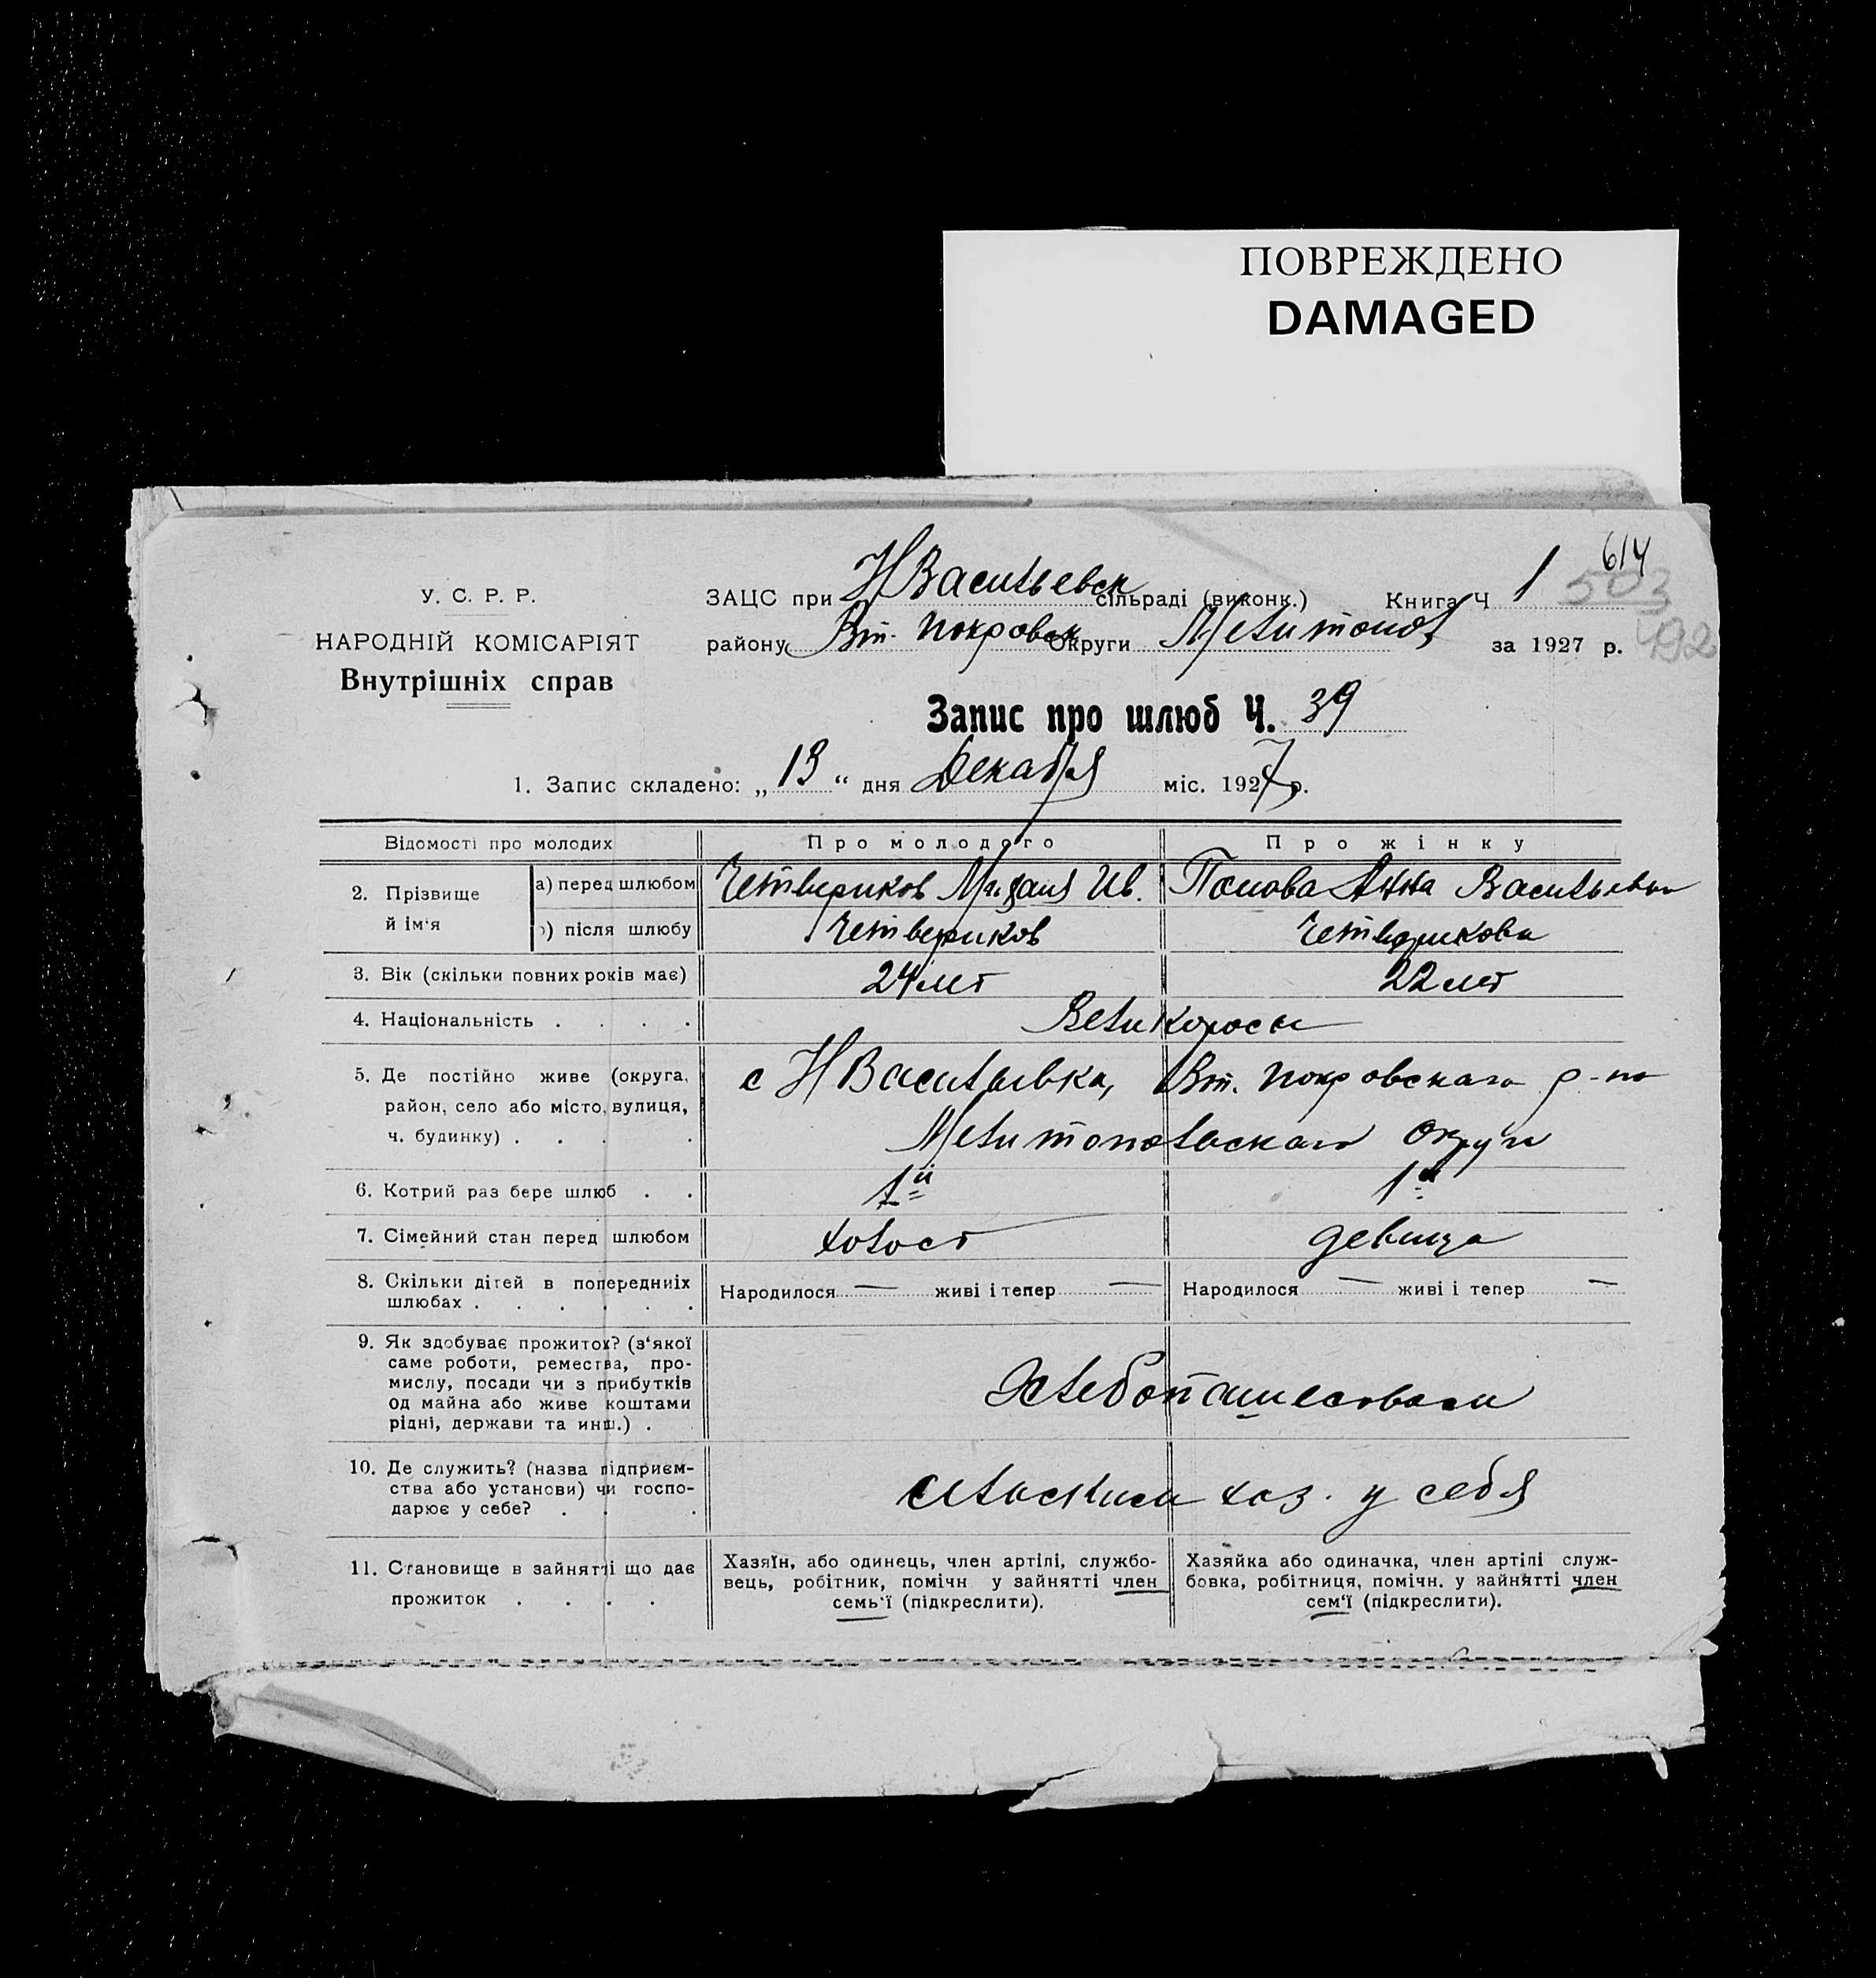 ПОВРЕЖДЕНО
DAMAGED
614
503
492
У. С. Р. Р.
НАРОДНІЙ КОМІСАРІЯТ
Внутрішніх справ
ЗАЦС при Н Васильевск сільраді (виконк.) Книга Ч 1
району Вт. Покровск Округи Мелитопол за 1927 р.
Запис про шлюб Ч. 39
1. Запис складено: „ 13 “ дня Декабря міс. 1927 р.
Відомості про молодих Про молодого Про жінку
2. Прізвище й ім'я
а) перед шлюбом Четвериков Ив. Попова Анна Васильевна
б) після шлюбу Четвериков Четверикова
3. Вік (скільки повних років має) 24 лет 22 лет
4. Національність . . . . Великороссы
5. Де постійно живе (округа, с Н Васильевка, Вт. Покровскаго р-на
район, село або місто, вулиця, Мелитопольскаго округа
ч. будинку) . . . .
6. Котрий раз бере шлюб . . 1й 1й
7. Сімейний стан перед шлюбом холост девица
8. Скільки дітей в попередниіх Народилося — живі і тепер — Народилося — живі і тепер —
шлюбах . . . . . .
9. Як здобуває прожиток? (з'якої
саме роботи, ремества, про-
мислу, посади чи з прибутків
од майна або живе коштами
рідні, держави та инш.) . Хлебопашеством
10. Де служить? (назва підприєм-
ства або установи) чи госпо- сельским хоз. у себя
дарює у себе? . . .
11. Становище в зайнятті що дає
прожиток . . . .
Хазяїн, або одинець, член артілі, службо-
вець, робітник, помічн у зайнятті член
семь'ї (підкреслити).
Хазяйка або одиначка, член артілі служ-
бовка, робітниця, помічн. у зайнятті член
сем'ї (підкреслити).